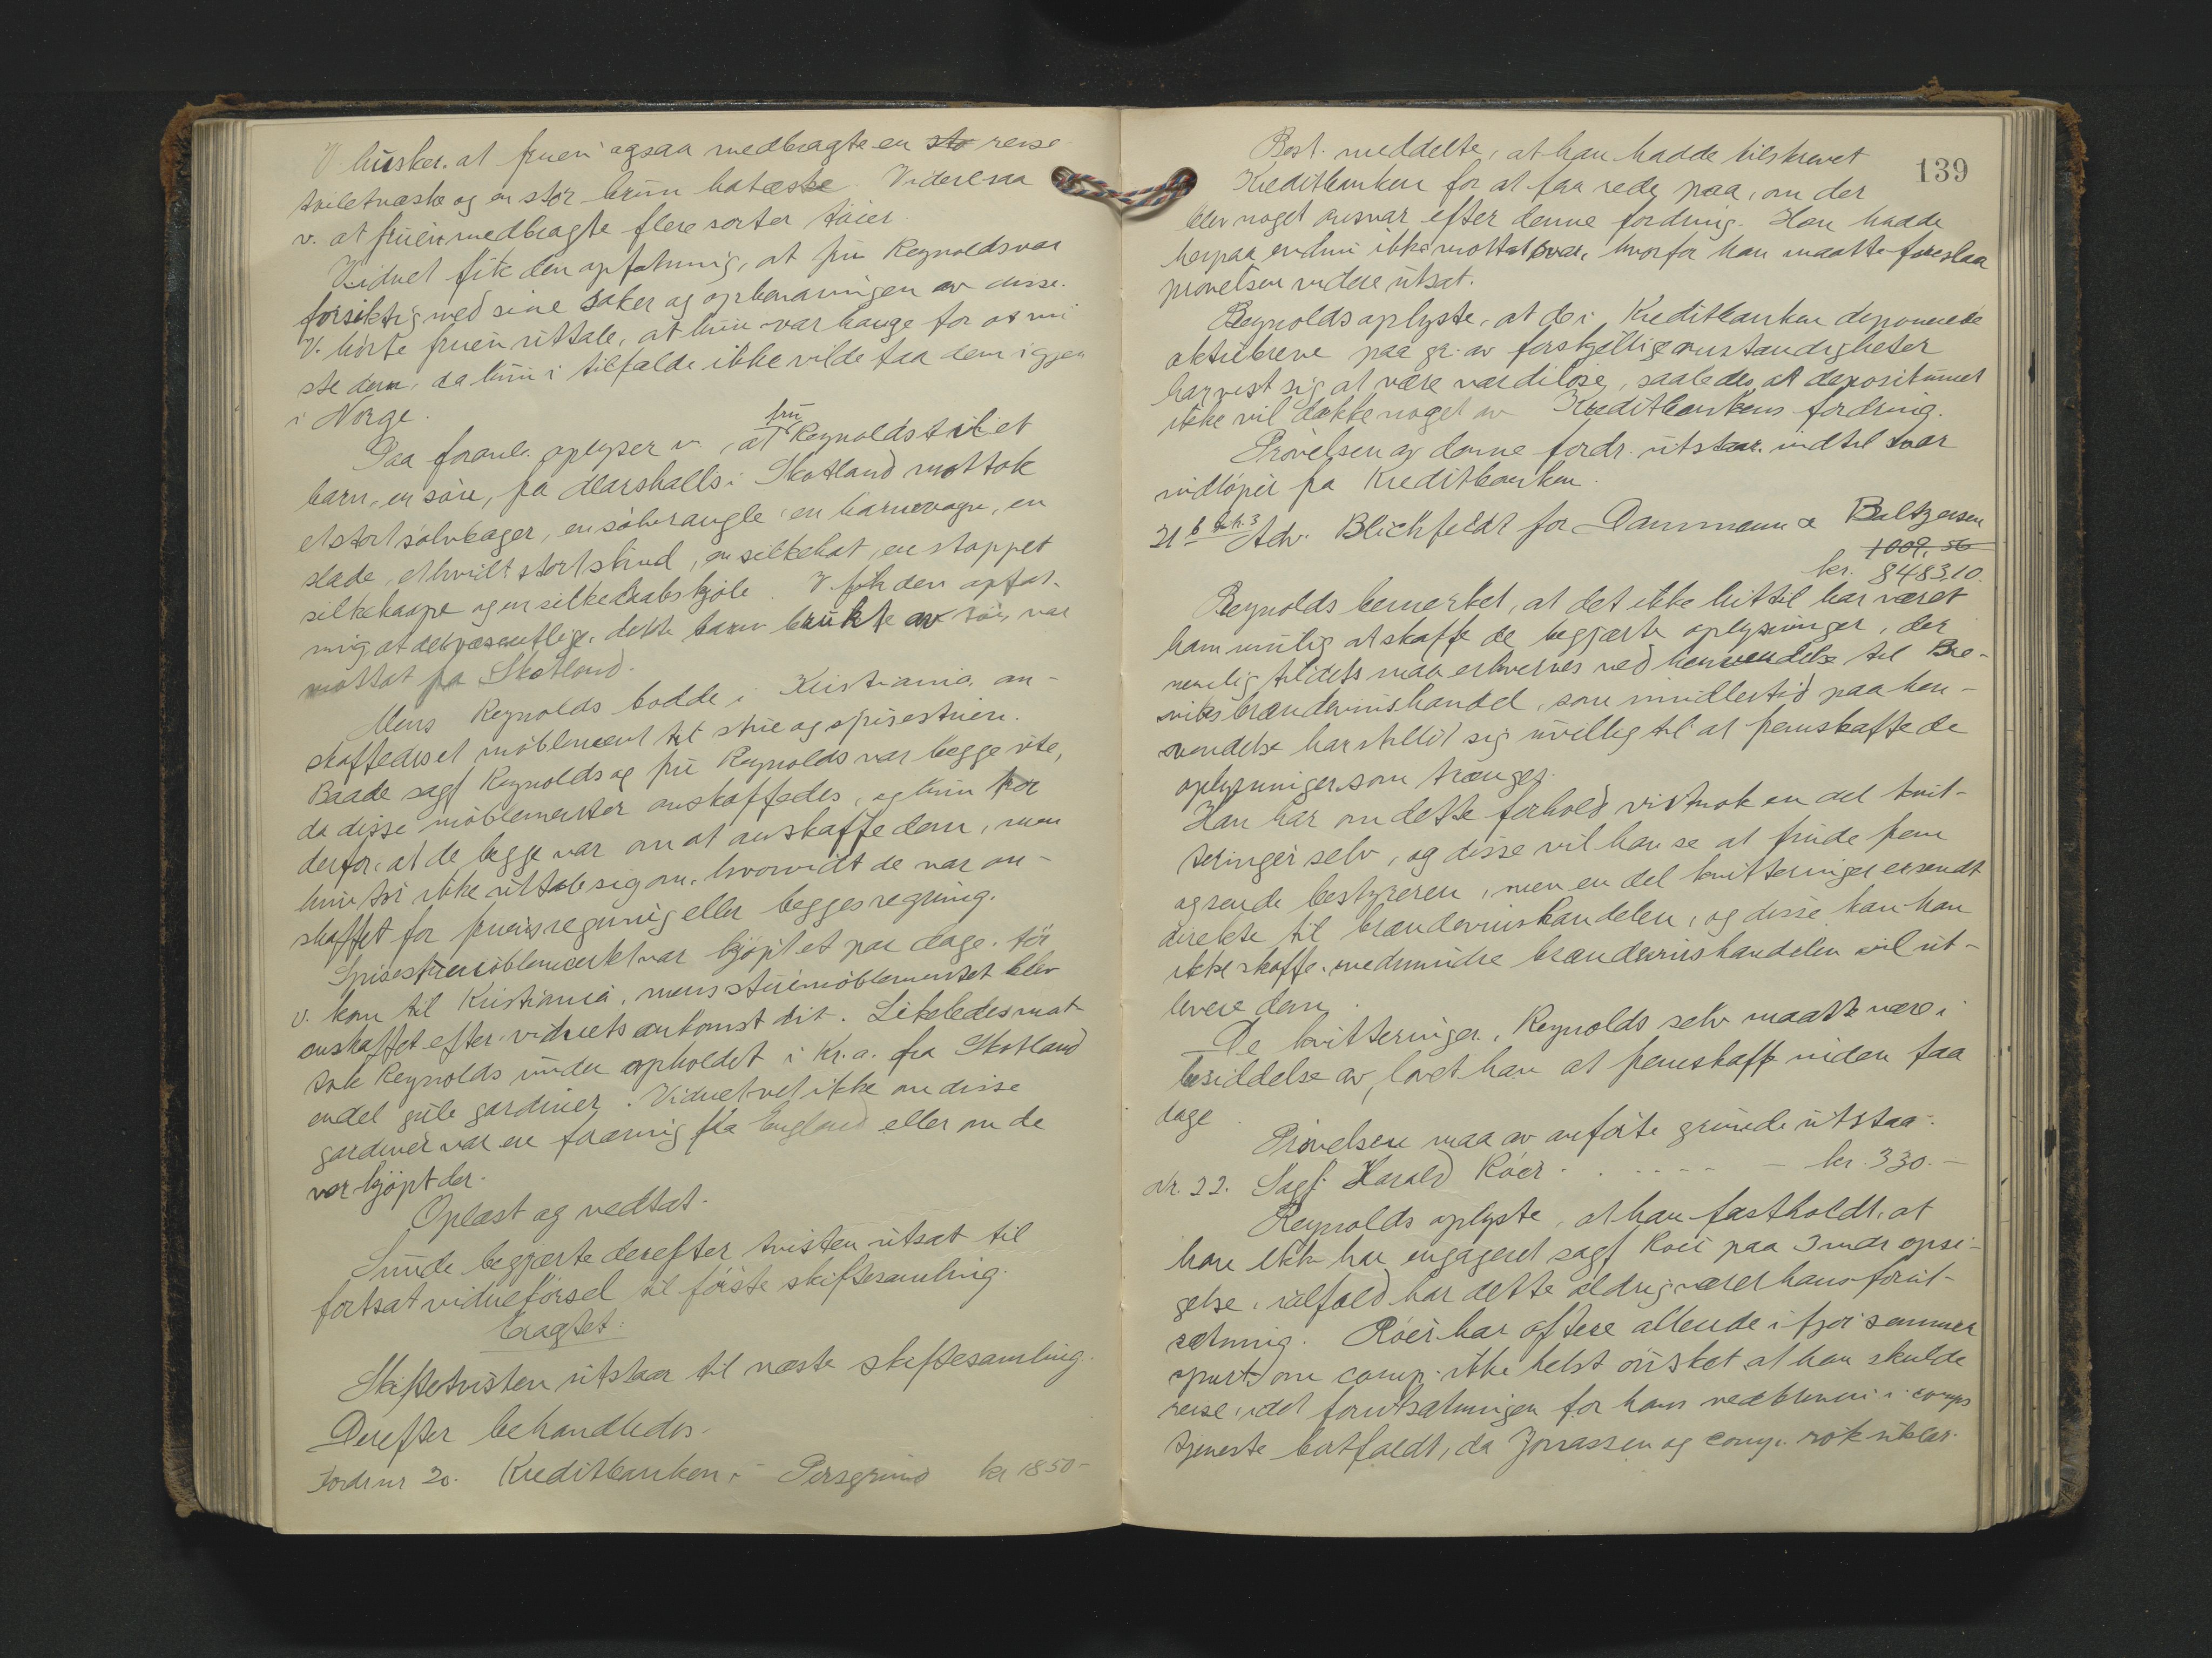 V. husker. at fruen ogsaa medbragte en sto reise
toiletvæske og en stor brun hatæske. Videre saa
v. at fruen medbragte flere sorter tøier.
Vidnet fik den opfatning, at fru Reynolds var
forsiktig med sine saker og opbevaringen av disse.
V. hørte fruen uttale, at hun var bange for at mi
ste dem, da hun i tilfælde ikke vilde faa dem igjen
i Norge.
Paa foranl. oplyser v. at fru Reynolds til et
barn, en søn, fra Marshalls i Skotland mottok
et stort sølvbæger, en sølvrangle, en barnevogn, en
slæde, et hvitt stort skind, en silkehat, en stoppet
silkekaape og en silkedaabskjole. V. fik den opfat-
ning, at det væsentlige, dette barn brukte av tøi, var
mottat fra Skotland.
Mens Reynolds bodde i Kristiania an-
skaffedes et møblement til stue og spisestuen.
Baade sagf Reynolds og fru Reynolds var begge ute,
da disse møblementer anskaffedes, og hun tror
derfor, at de begge var om at anskaffe dem, men
hun tør ikke uttale sig om, hvorvidt de var an-
skaffet for fruens regning eller begges regning.
Spisestuemøblementet var kjøpt et par dage før
v. kom til Kristiania, mens stuemøblementet blev
anskaffet efter vidnets ankomst dit. Likeledes mot
tok Reynolds under opholdet i Kr.a. fra Skotland
endel gule gardiner. Vidnet vet ikke om disse
gardiner var en foræring fra England eller om de
var kjøpt der.
Oplæst og vedtat.
Sunde begjærte derefter tvisten utsat til
fortsat vidneførsel til første skiftesamling.
Eragtet:
Skiftetvisten utstaar til næste skiftesamling.
Derefter behandledes.
Fordr nr 20. Kreditbanken i Porsgrund kr 1850-
139
Best. meddelte, at han hadde tilskrevet
Kreditbanken for at faa rede paa, om der
blev noget ansvar efter denne fordring. Han hadde
herpaa endnu ikke mottat svar, hvorfor han maatte foreslaa
prøvelsen videre utsat.
Reynolds oplyste, at de i Kreditbanken deponerede
aktiebreve paa gr. av forskjellige omstændigheter
har vist sig at være værdiløse, saaledes at depositumet
ikke vil dække noget av Kreditbankens fordring.
Prøvelsen av denne fordr. utstaar indtil svar
indløper fra Kreditbanken.
21 Adv. Blichfeldt for Dannmann & Baltzersen
1009,56
kr. 8483.10.
Reynolds bemerket, at det ikke hittil har været
ham mulig at skaffe de begjærte oplysninger, der
nemlig tildels maa erhverves ved henvendelse til Bre-
viks brændevinshandel, som imidlertid paa hen-
vendelse har stillet sig uvillig til at fremskaffe de
oplysninger, som trænges.
Han har om dette forhold vistnok en del kvit-
teringer selv, og disse vil han se at finde frem
og sende bestyreren, men en del kvitteringer er sendt
direkte til brændevinshandelen, og disse kan han
ikke skaffe, medmindre brændevinshandelen vil ut-
levere dem.
De kvitteringer, Reynolds selv maatte være i
besiddelse av, lovet han at fremskaffe inden faa
dage.
Prøvelsen maa av anførte grunde utstaa.
Nr. 22. Sagf. Harald Röer - - - - - kr. 330.-
Reynolds oplyste, at han fastholdt, at
han ikke har engageret sagf Röer paa 3 mdrs opsi-
gelse, ialfald har dette aldrig været hans forut-
sætning. Röer har oftere allerede i fjor sommer
spurt om comp. ikke helst ønsket at han skulde
reise, idet forutsætningen for hans vedbliven i comps
tjeneste bortfaldt, da Jonassen og comp. røk uklar.